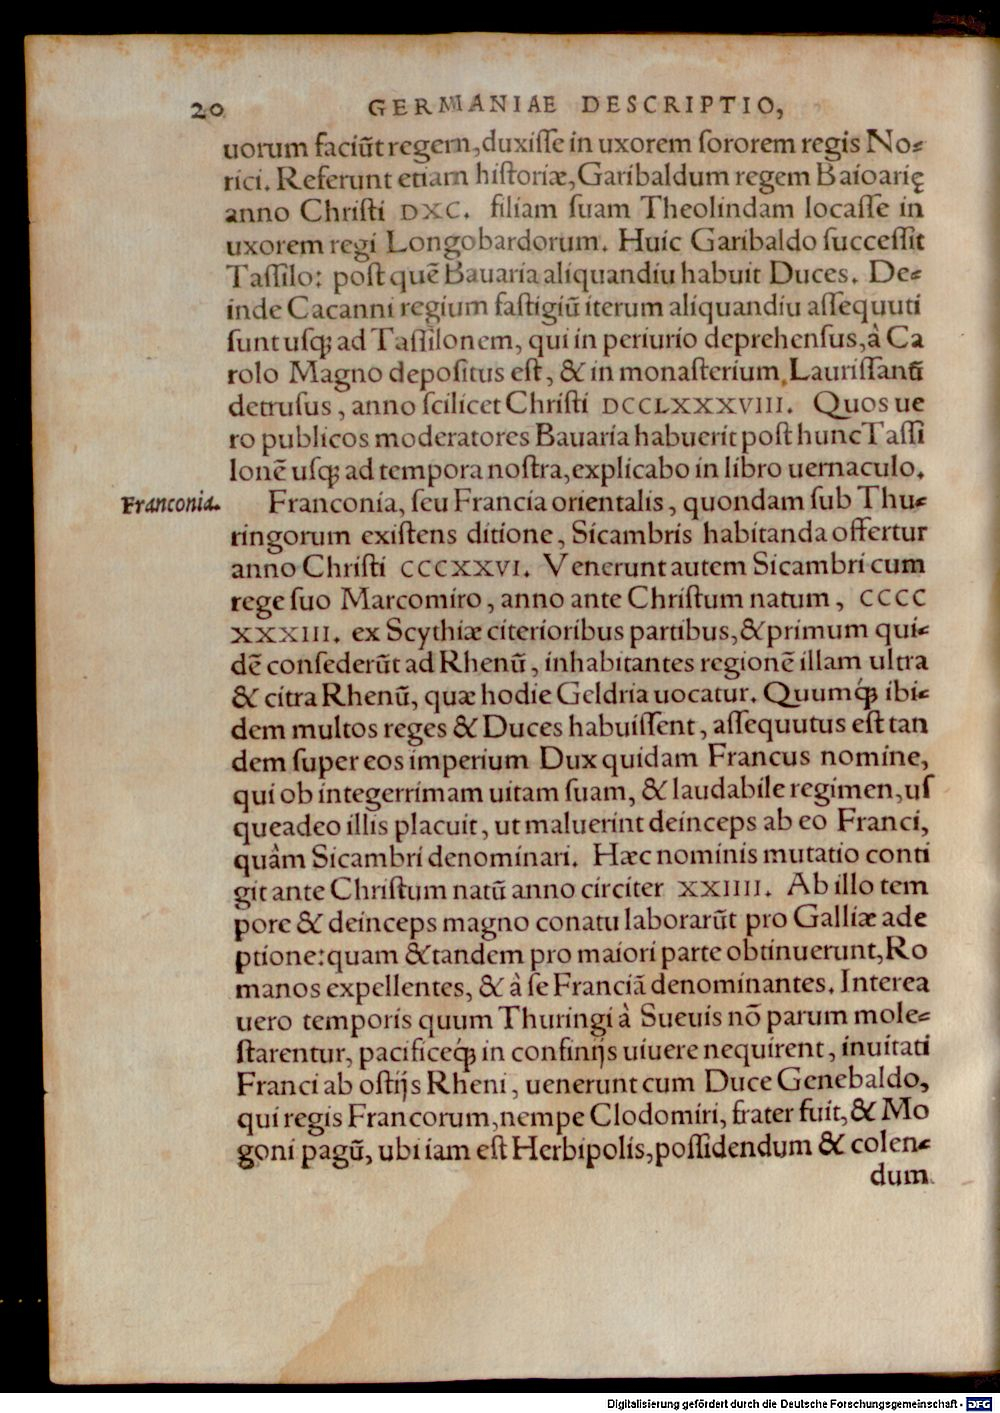 20 GERMANIAE DESCRIPTIO,
uorum faciũt regem, duxiſſe in uxorem ſororem regis No-
rici. Referunt etiam hiſtoriæ, Garibaldum regem Baioarię
anno Chriſti DXC. filiam ſuam Theolindam locaſſe in
uxorem regi Longobardorum. Huic Garibaldo ſucceſſit
Taſſilo: poſt quẽ Bauaria aliquandiu habuit Duces. De-
inde Cacanni regium faſtigiũ iterum aliquandiu aſſequuti
ſunt uſq; ad Taſſilonem, qui in periurio deprehenſus, à Ca
rolo Magno depoſitus eſt, & in monaſterium Lauriſſanũ
detruſus, anno ſcilicet Chriſti DCCLXXXVIII. Quos ue
ro publicos moderatores Bauaria habuerit poſt hunc Taſſi
lonẽ uſq; ad tempora noſtra, explicabo in libro uernaculo.
Franconia. Franconia, ſeu Francia orientalis, quondam ſub Thu-
ringorum exiſtens ditione, Sicambris habitanda offertur
anno Chriſti CCCXXVI. Venerunt autem Sicambri cum
rege ſuo Marcomiro, anno ante Chriſtum natum, CCCC
XXXIII. ex Scythiæ citerioribus partibus, & primum qui-
dẽ conſederũt ad Rhenũ, inhabitantes regionẽ illam ultra
& citra Rhenũ, quæ hodie Geldria uocatur. Quumq́; ibi-
dem multos reges & Duces habuiſſent, aſſequutus eſt tan
dem ſuper eos imperium Dux quidam Francus nomine,
qui ob integerrimam uitam ſuam, & laudabile regimen, uſ
queadeo illis placuit, ut maluerint deinceps ab eo Franci,
quàm Sicambri denominari. Hæc nominis mutatio conti
git ante Chriſtum natũ anno circiter XXIIII. Ab illo tem
pore & deinceps magno conatu laborarũt pro Galliæ ade
ptione: quam & tandem pro maiori parte obtinuerunt, Ro
manos expellentes, & à ſe Franciã denominantes. Interea
uero temporis quum Thuringi à Sueuis nõ parum mole-
ſtarentur, pacificeq́; in confinijs uiuere nequirent, inuitati
Franci ab oſtijs Rheni, uenerunt cum Duce Genebaldo,
qui regis Francorum, nempe Clodomiri, frater fuit, & Mo
goni pagũ, ubi iam eſt Herbipolis, poſſidendum & colen-
dum
Digitalisierung gefördert durch die Deutsche Forschungsgemeinschaft - DFG